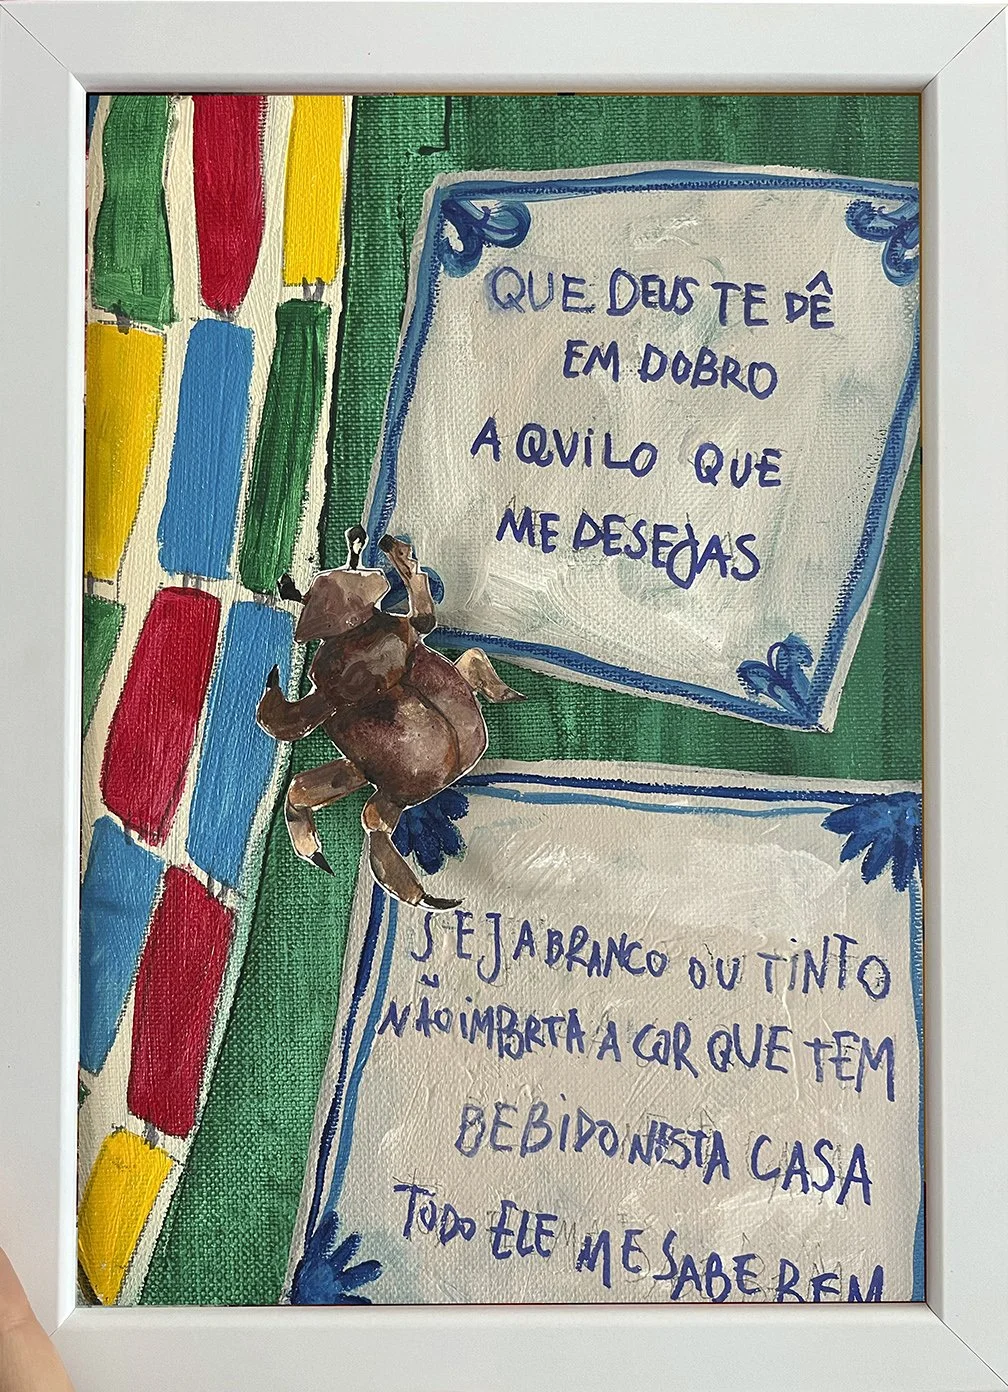 QUE DEUS TE DÊ
EM DOBRO
AQUILO QUE
ME DESEJAS
SEJA BRANCO OU TINTO
NÃO IMPORTA A COR QUE TEM
BEBIDO NESTA CASA
TODO ELE ME SABE BEM